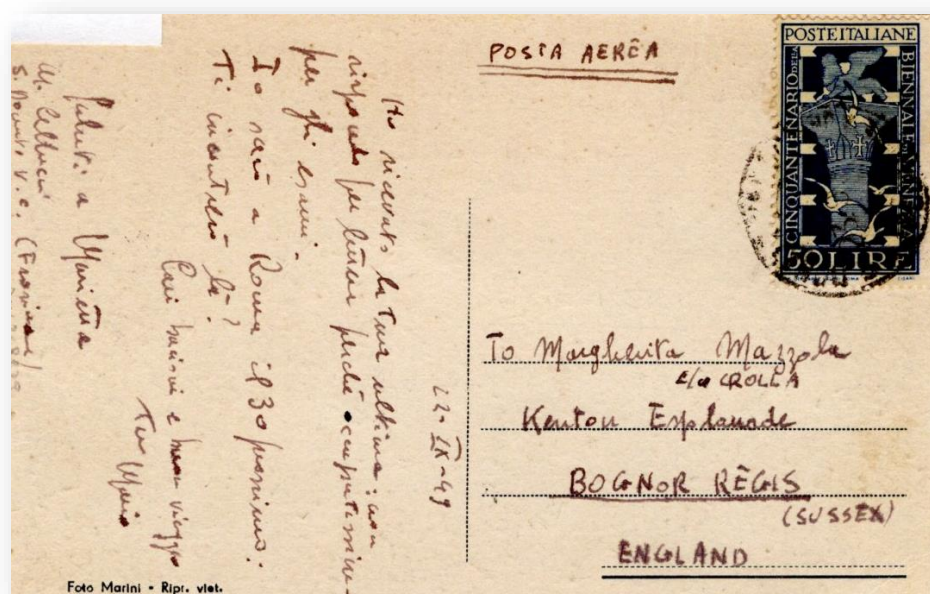 POSTA AERÊA
POSTE ITALIANE
CINQUANTENARIO DELLA
BIENNALE DI VENEZIA
50 LIRE
22-IX-49
Ho ricevuto la tua ultima; non
rispondo per lettera perché occupatissimo
per gli esami.
Io sarò a Roma il 30 prossimo.
Ti incontrerò lì?
Cari bacioni e buon viaggio
Tuo Mario
Saluti a Marietta
M. Cellucci
S. Donato V.C. (Frosinone)
To Margherita Mazzola
c/o CROLLA
Kenton Esplanade
BOGNOR RÊGIS
(SUSSEX)
ENGLAND
Foto Marini - Ripr. viet.